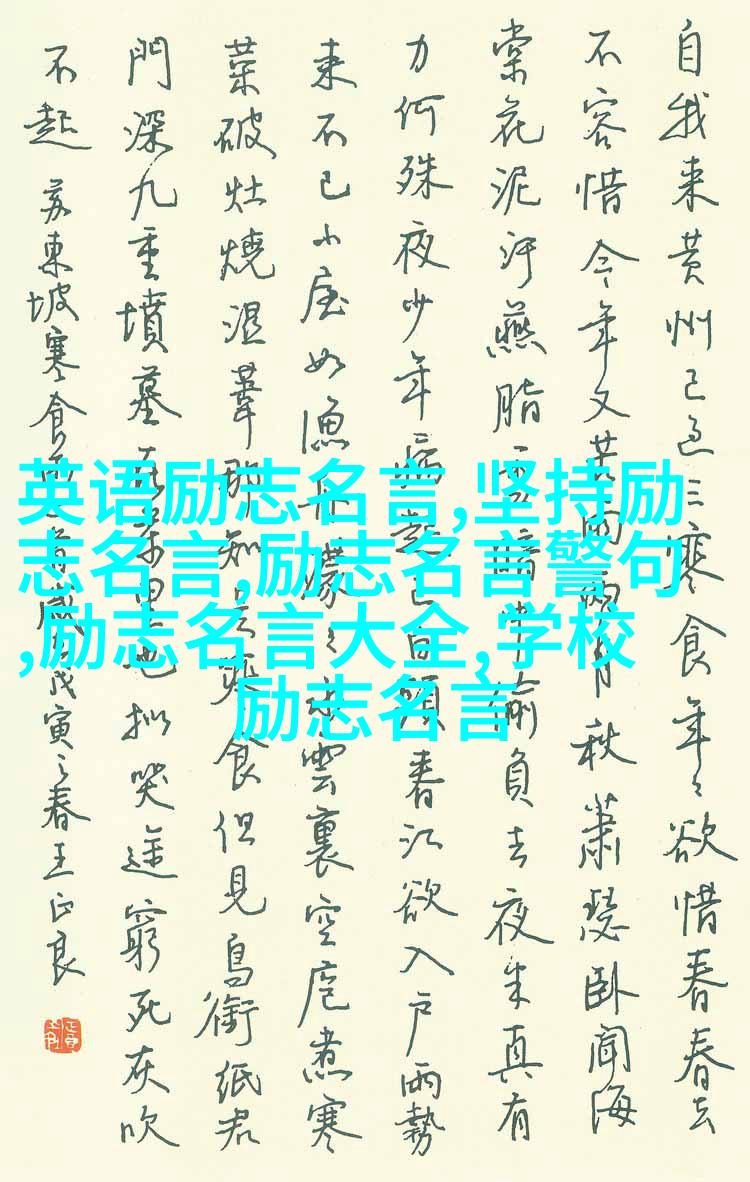 自我来黄州已过三寒食年々欲惜春春去
不容惜今年又苦雨两月秋萧瑟卧闻海
棠花泥汙燕脂雪暗中偷负去夜半真有
力何殊夜少年病起已白头春江欲入户雨势
来不已小屋如渔舟濛々水云里空庖煮寒
菜破灶烧湿苇那知是寒食但见乌衔纸君
门深九重坟墓在万里也拟哭途穷死灰吹
不起 苏东坡寒食雨 戊寅之春王正良
英语励志名言,坚持励
志名言,励志名言警句
,励志名言大全,学校
励志名言